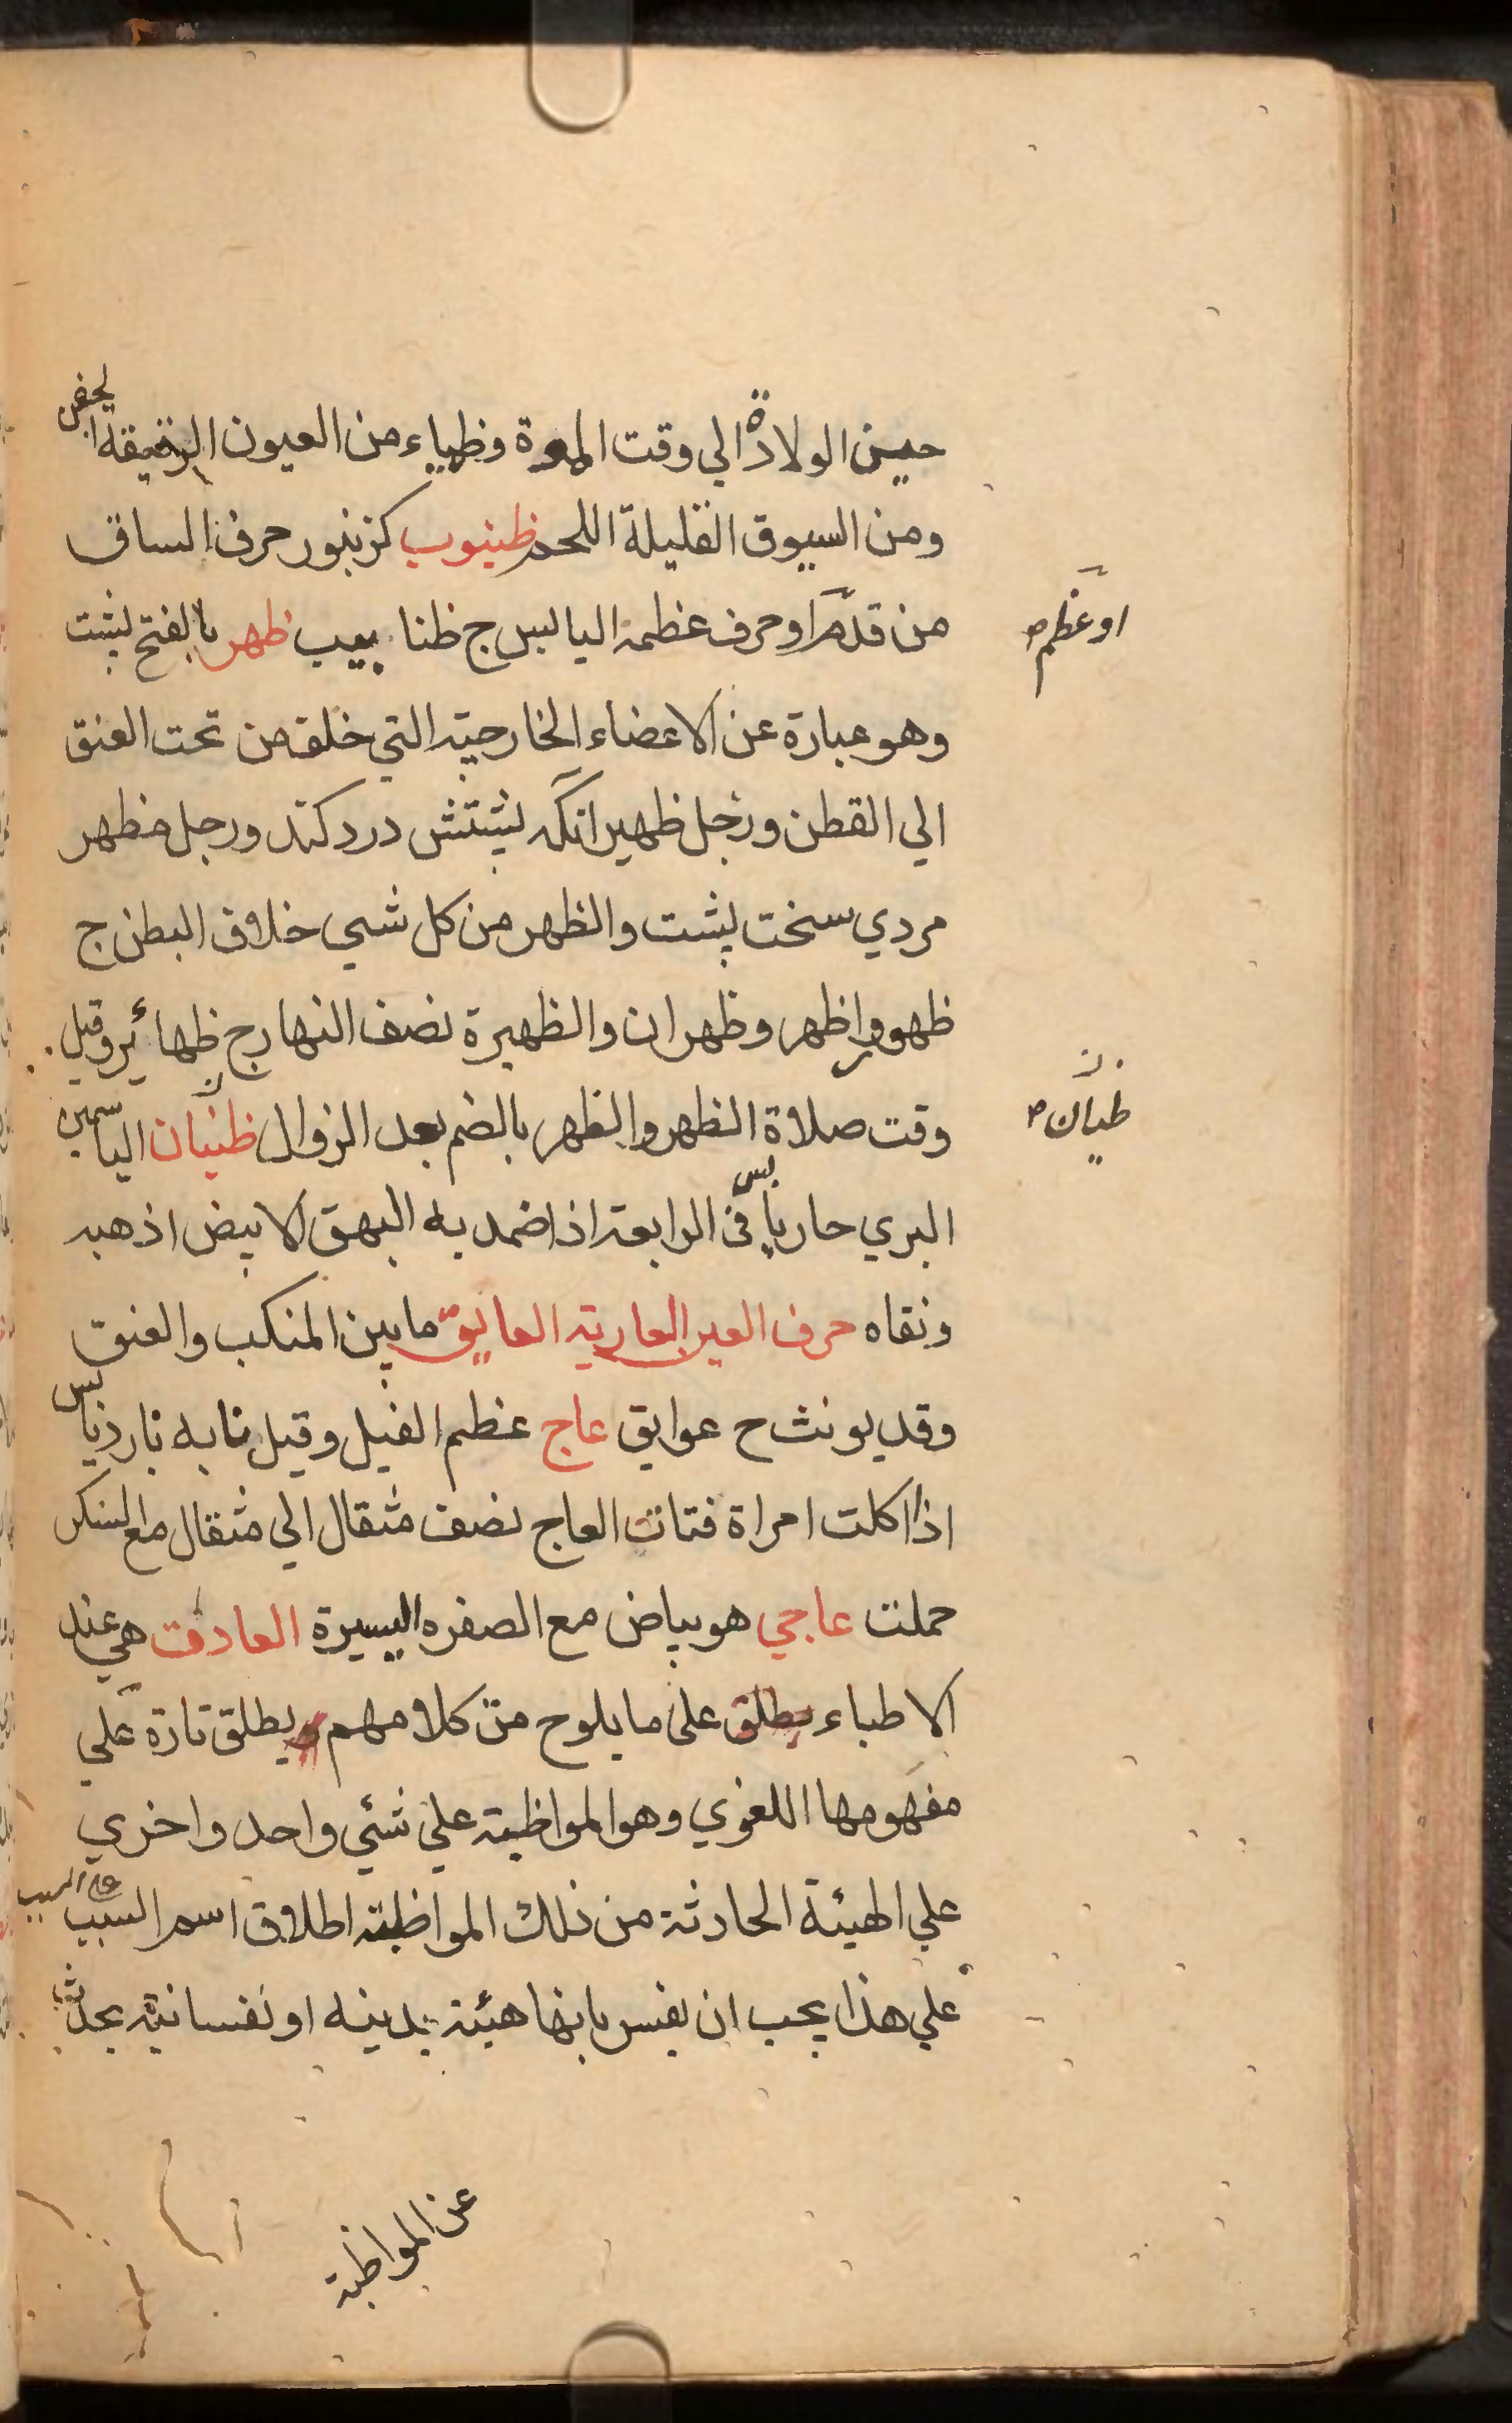 حين الولادة الي وقت الموة وظمياء من العيون الرقيقة الجفن
ومن السيوق القليلة اللحم ظنبوب كزنبور حرف الساق
من قدم او حرف عظمة اليابس ج ظنابيب ظهر بالفتح پشت
او عظم ص
وهو عبارة عن الاعضاء الخارجية التي خلق من تحت العنق
الي القطن ورجل ظهير انكه پشتش درد كند ورجل مظهر
مردي سخت پشت والظهر من كل شي خلاف البطن ج
ظهور واظهر وظهران والظهيرة نصف النهار ج ظهائر وقيل
وقت صلاة الظهر والظهر بالضم بعد الزوال ظيان الياسمين
ظيان ص
البري حار يابس في الرابعة اذا ضمد به البهق الابيض اذهبه
ونقاه حرف العين العارية العايق ما بين المنكب والعنق
وقد يونث ح عوايق عاج عظم الفيل وقيل نابه بارد يابس
اذا اكلت امراة فتات العاج نصف مثقال الي مثقال مع السكر
حملت عاجي هو بياض مع الصفره اليسيرة العادت هي عند
الاطباء يطلق علي ما يلوح من كلامهم يطلق تارة علي
مفهومها اللغوي وهو المواظبة علي شئي واحد واخري
علي الهيئة الحادثة من ذلك المواظبة اطلاق اسم السبب علي المسبب
علي هذا يجب ان يفسر بانها هيئة بدنيه او نفسانية يحدث
عن المواظبة